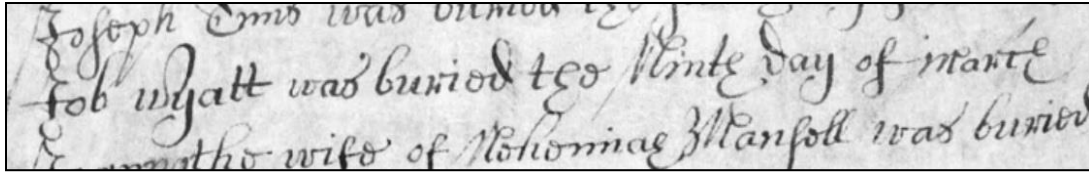 Joseph was buried the
Job wyatt was buried the Ninth Day of march
the wife of Nehemias Mansell was buried